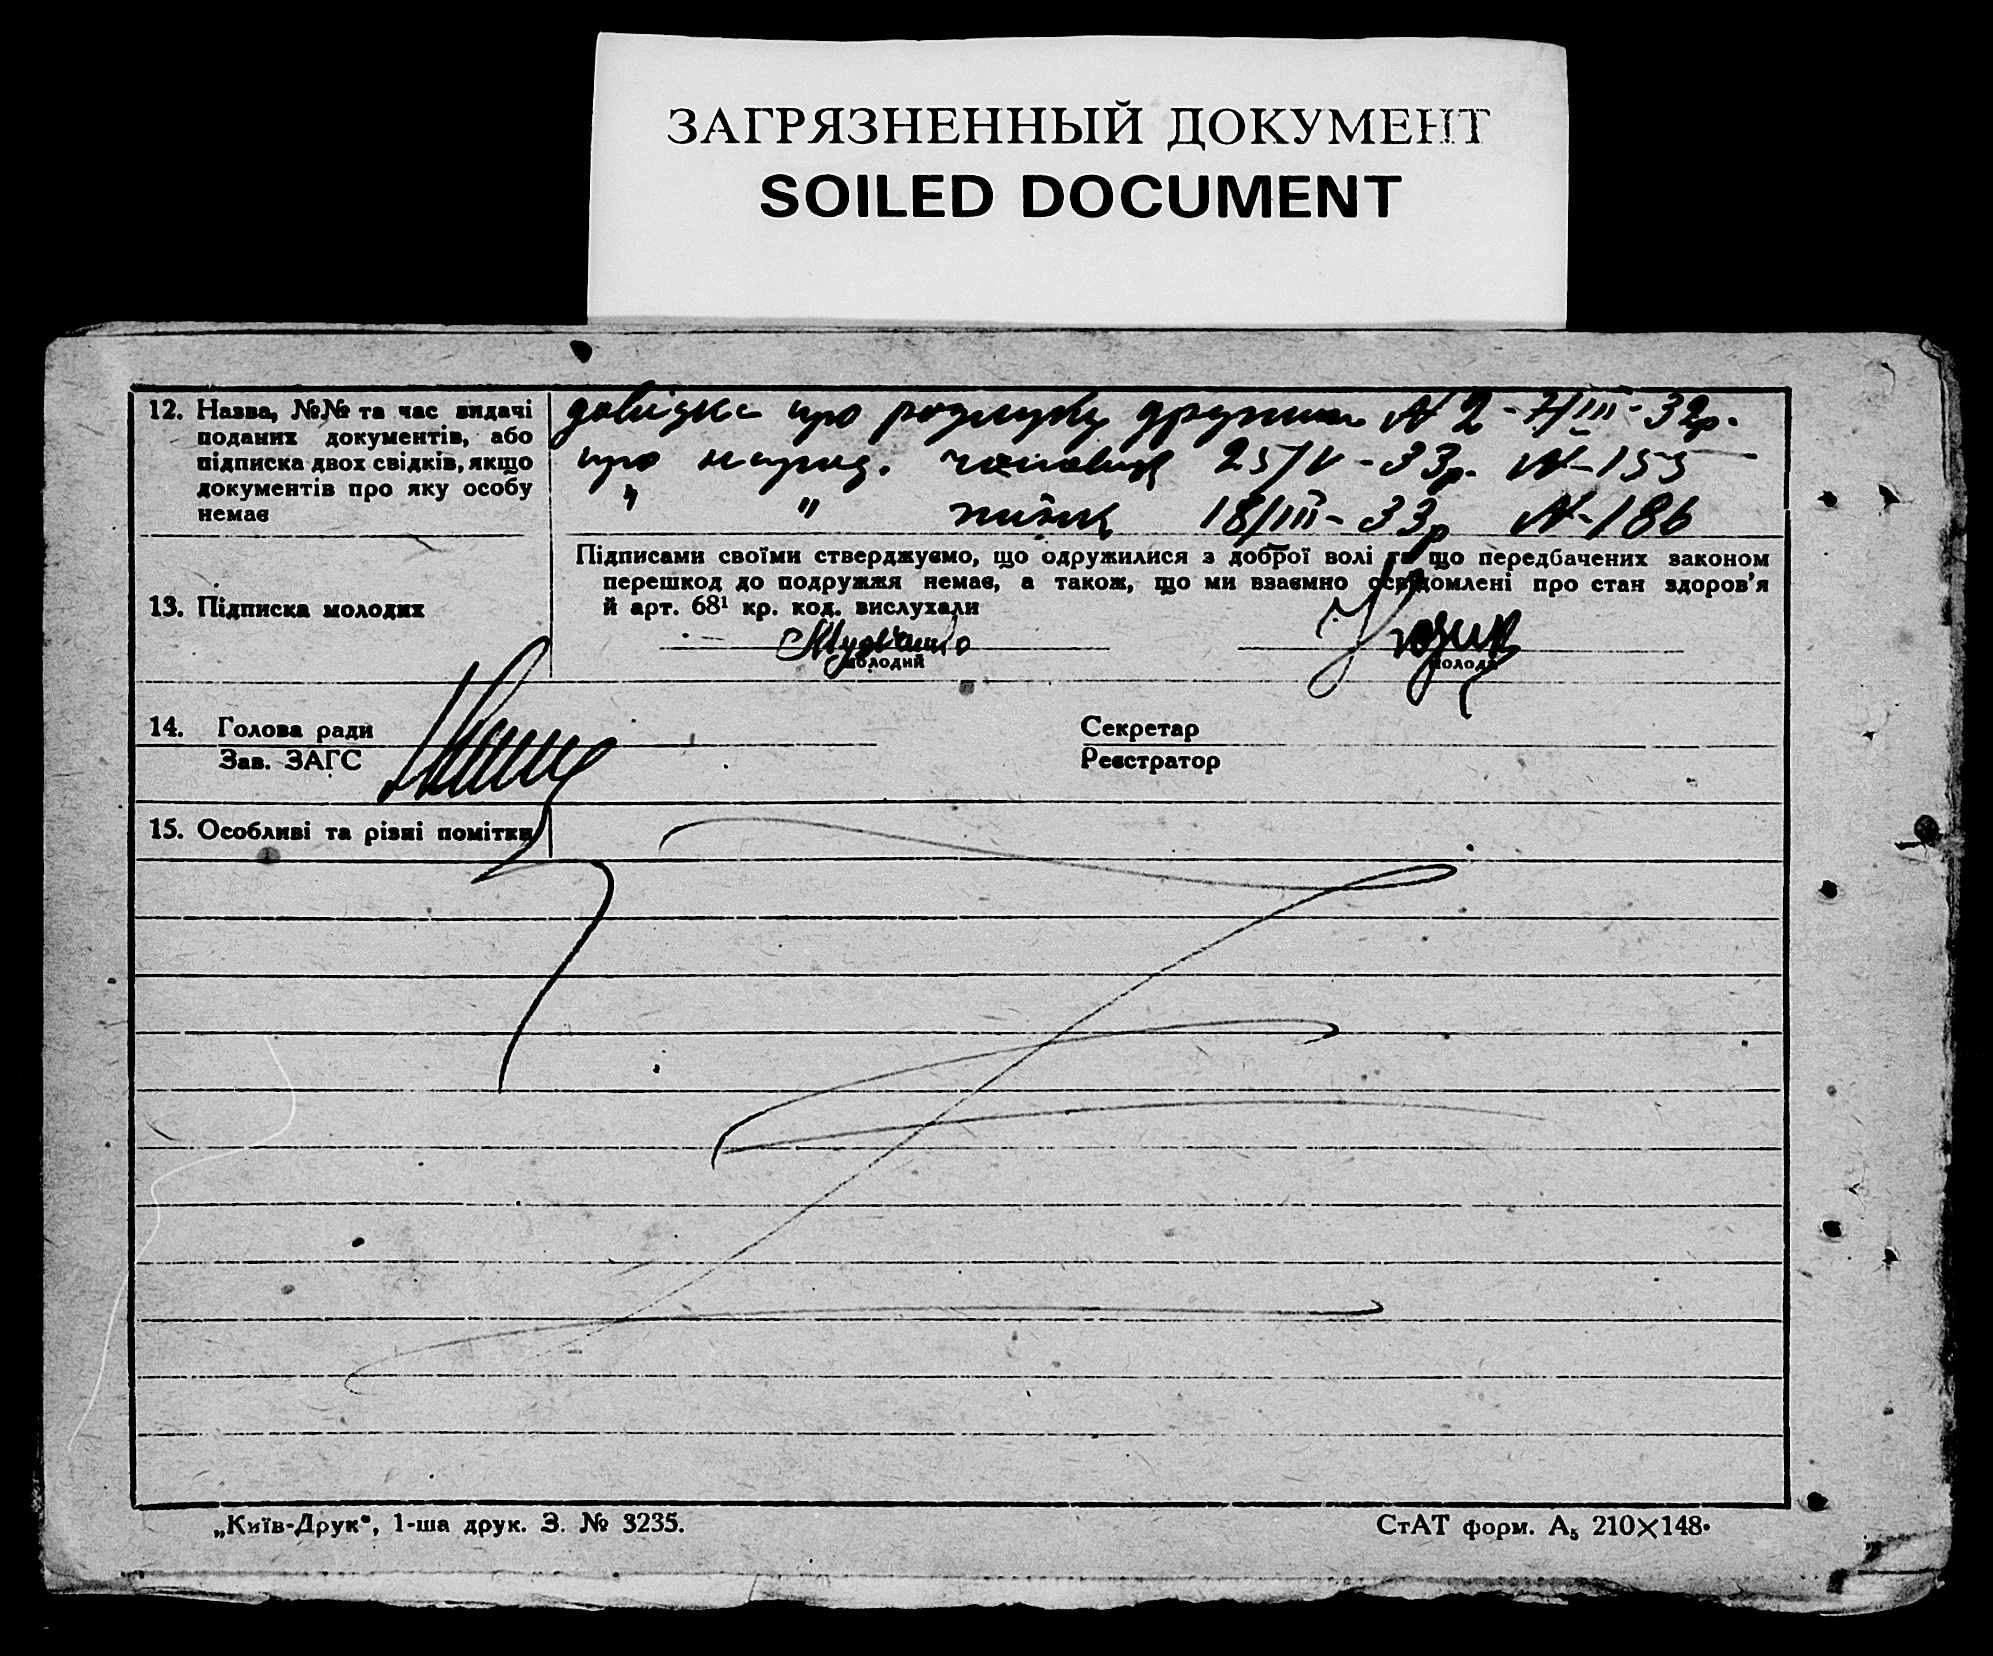 ЗАГРЯЗНЕННЫЙ ДОКУМЕНТ
SOILED DOCUMENT
12. Назва, №№ та час видачі
поданих документів, або
підписка двох свідків, якщо
документів про яку особу
немає
довідка про розлуку дружини № 2 - 7/III - 32р.
про народ. чоловіка 25/V - 33р. № - 155
" " жінки 18/III - 33р № - 186
Підписами своїми стверджуємо, що одружилися з доброї волі та що передбачених законом
перешкод до подружжя немає, а також, що ми взаємно освідомлені про стан здоров'я
й арт. 68¹ кр. код. вислухали
13. Підписка молодих
молодий
молода
14. Голова ради
Зав. ЗАГС
Секретар
Реєстратор
15. Особливі та різні помітки
„Київ-Друк“, 1-ша друк. З. № 3235.
СтАТ форм. А₅ 210×148.